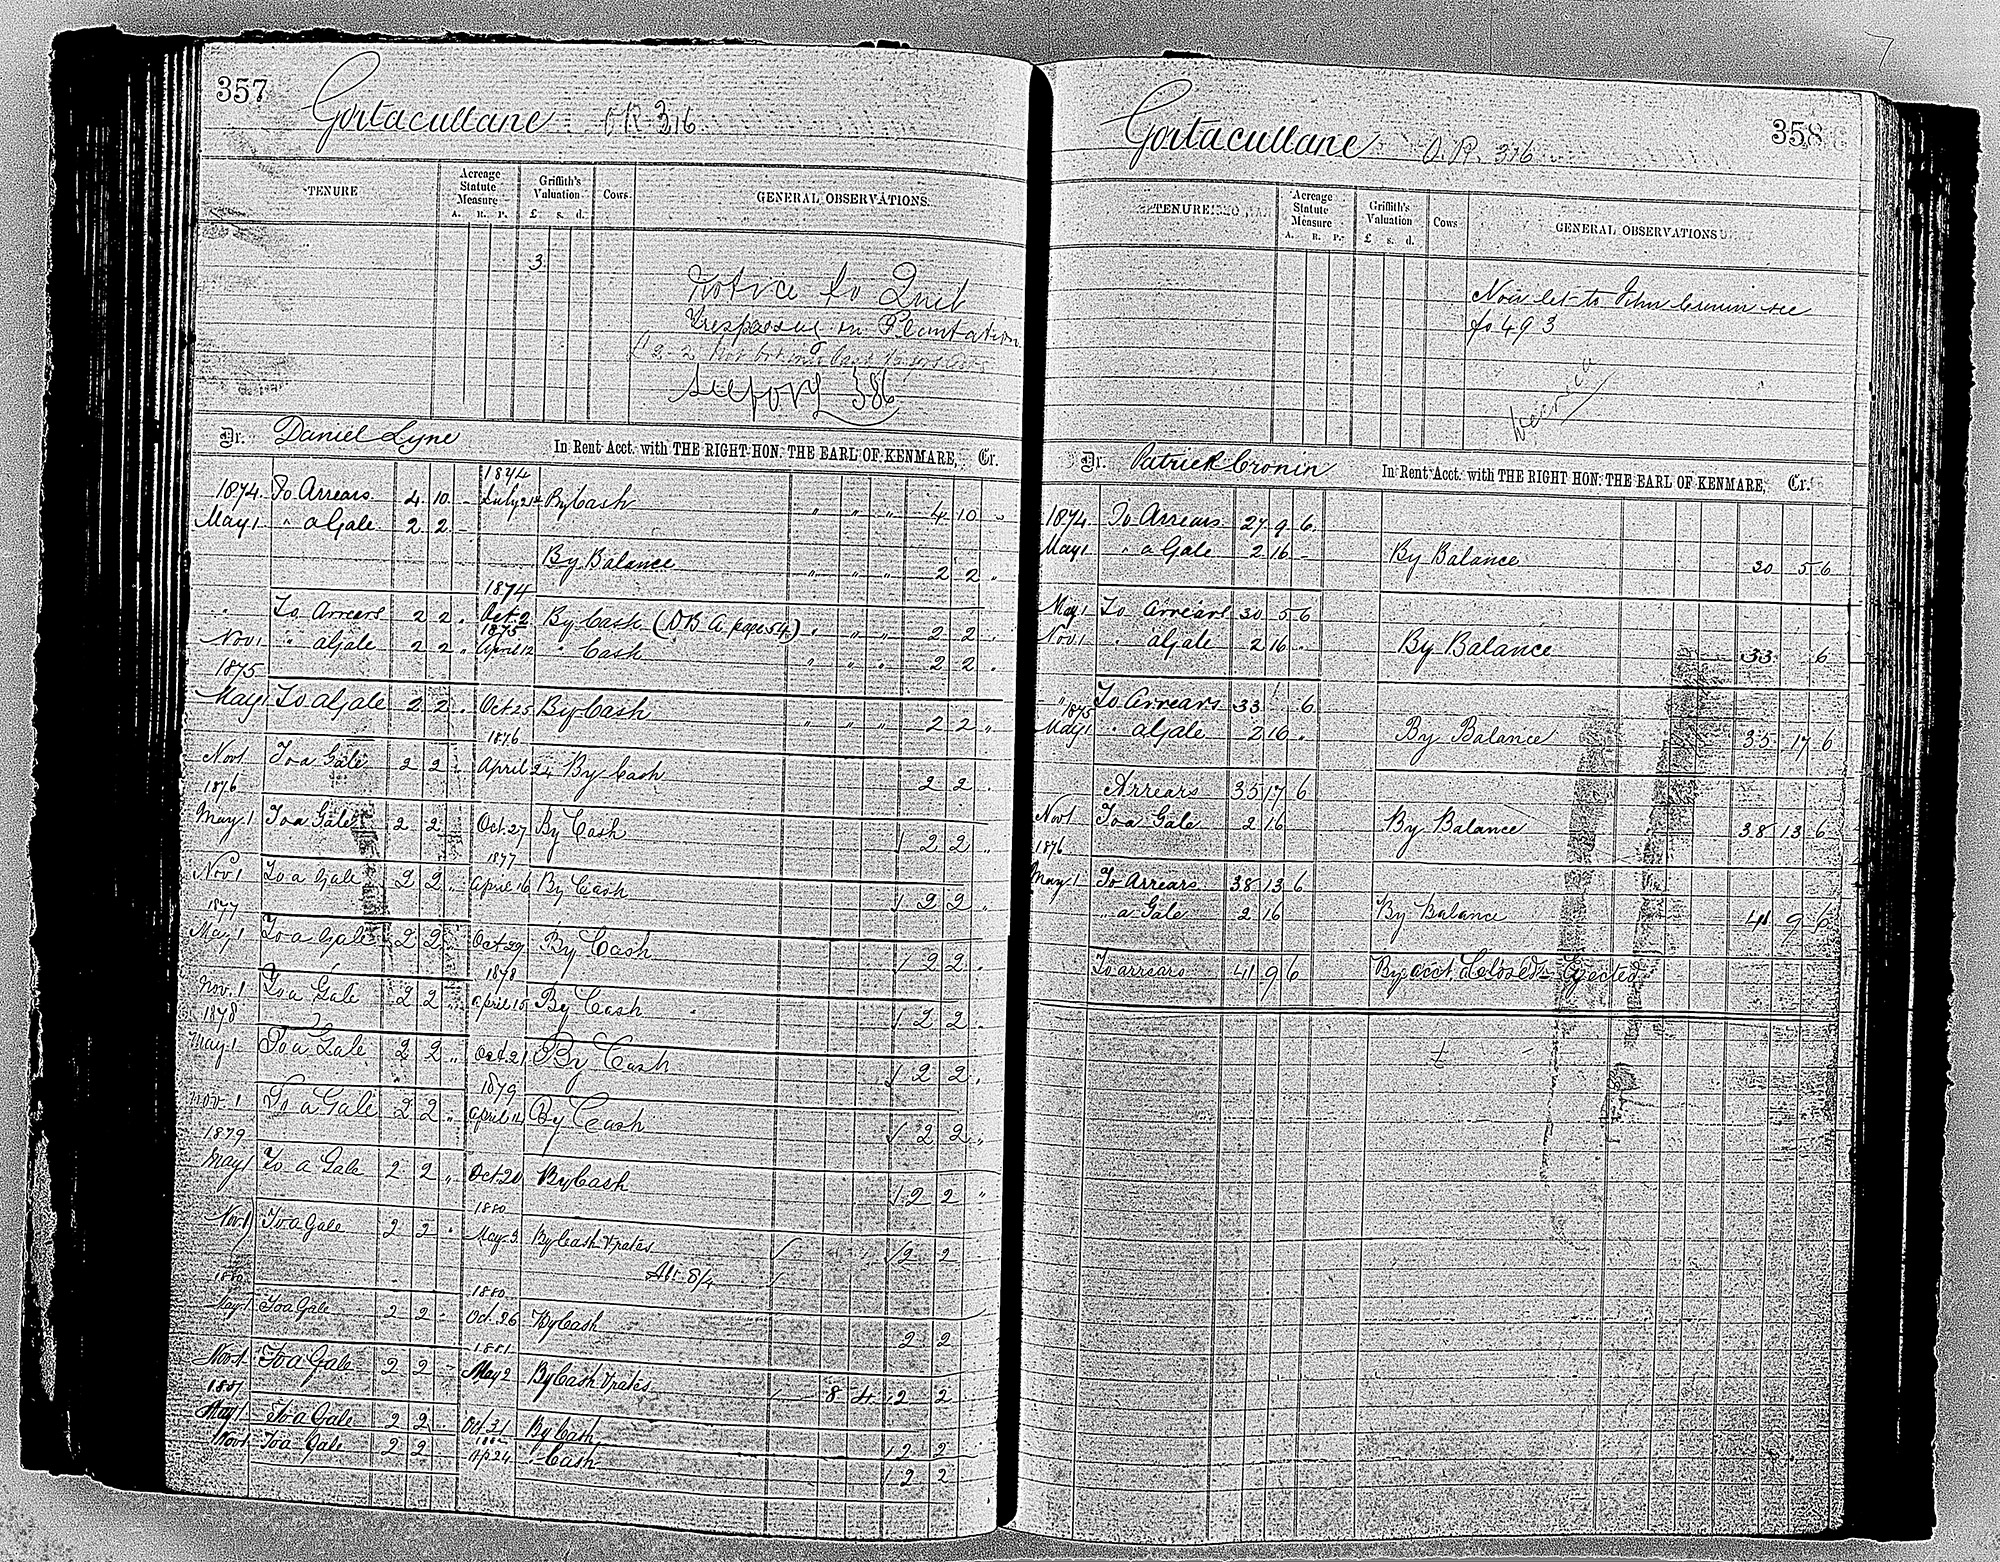 357
Gortacullane OR 316
TENURE Acreage Statute Measure Griffith's Valuation Cows GENERAL OBSERVATIONS.
A. R. P. £ s. d.
3
Notice to Quit
Trespassing in Plantation
£2-2
see folio 386
Dr. Daniel Lyne In Rent Acct. with THE RIGHT HON. THE EARL OF KENMARE, Cr.
1874
1874. To Arrears 4 10 - July 21st By Cash " " " 4 10 -
May 1 " a Gale 2 2 -
By Balance " " " 2 2 "
1874
" To Arrears 2 2 " Oct. 2 By Cash (OBA page 54) " " " 2 2 "
1875
Nov. 1 " a Gale 2 2 " April 12 " Cash " " " 2 2 "
1875
May 1 To a Gale 2 2 " Oct 25 By Cash " " " 2 2 "
1876
Nov 1 To a Gale 2 2 " April 24 By Cash 2 2 "
1876
May 1 To a Gale 2 2 " Oct. 27 By Cash 2 2 "
1877
Nov 1 To a Gale 2 2 " April 16 By Cash 2 2 "
1877
May 1 To a Gale 2 2 " Oct 29 By Cash 2 2 "
1878
Nov. 1 To a Gale 2 2 " April 15 By Cash 2 2 "
1878
May 1 To a Gale 2 2 " Oct. 21 By Cash 2 2 "
1879
Nov. 1 To a Gale 2 2 " April 14 By Cash 2 2 "
1879
May 1 To a Gale 2 2 " Oct. 20 By Cash 2 2 "
1880
Nov. 1 To a Gale 2 2 " May 3 By Cash & rates 2 2
8/4
1880 1880
May 1 To a Gale 2 2 " Oct. 26 By Cash 2 2
1881
Nov 1 To a Gale 2 2 " May 2 By Cash & rates 8 4 2 2
1881
May 1 To a Gale 2 2 " Oct. 31 By Cash 2 2
Nov 1 To a Gale 2 2 Ap 24 " Cash 2 2
358
Gortacullane O.R. 316
TENURE Acreage Statute Measure Griffith's Valuation Cows GENERAL OBSERVATIONS
A. R. P. £ s. d.
Now let to John Cronin see
fo 493
Dr. Patrick Cronin In Rent Acct. with THE RIGHT HON. THE EARL OF KENMARE, Cr.
1874. To Arrears 27 9 6
May 1 " a Gale 2 16 - By Balance 30 5 6
May 1 To Arrears 30 5 6
Nov. 1 " a Gale 2 16 " By Balance 33 6
" To Arrears 33 " 6
1875
May 1 " a Gale 2 16 " By Balance 35 17 6
Arrears 35 17 6
Nov 1 To a Gale 2 16 By Balance 38 13 6
1876
May 1 To Arrears 38 13 6
" a Gale 2 16 By Balance 41 9 6
To arrears 41 9 6 By acct. Closed - Ejected